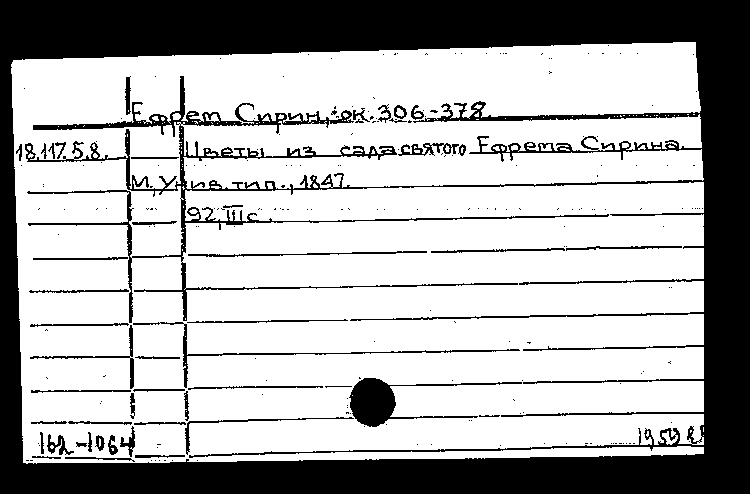 Ефрем Сирин, ок. 306-378.
18.117.5.8. Цветы из сада святого Ефрема Сирина.
М, Унив. тип., 1847.
92, III с.
162-1064